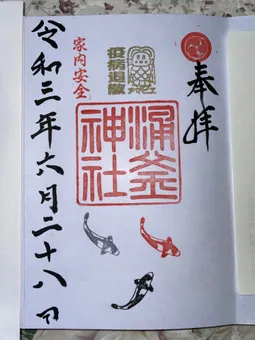 奉拝
疫病退散
涌釜
神社
家内安全
令和三年六月二十八日